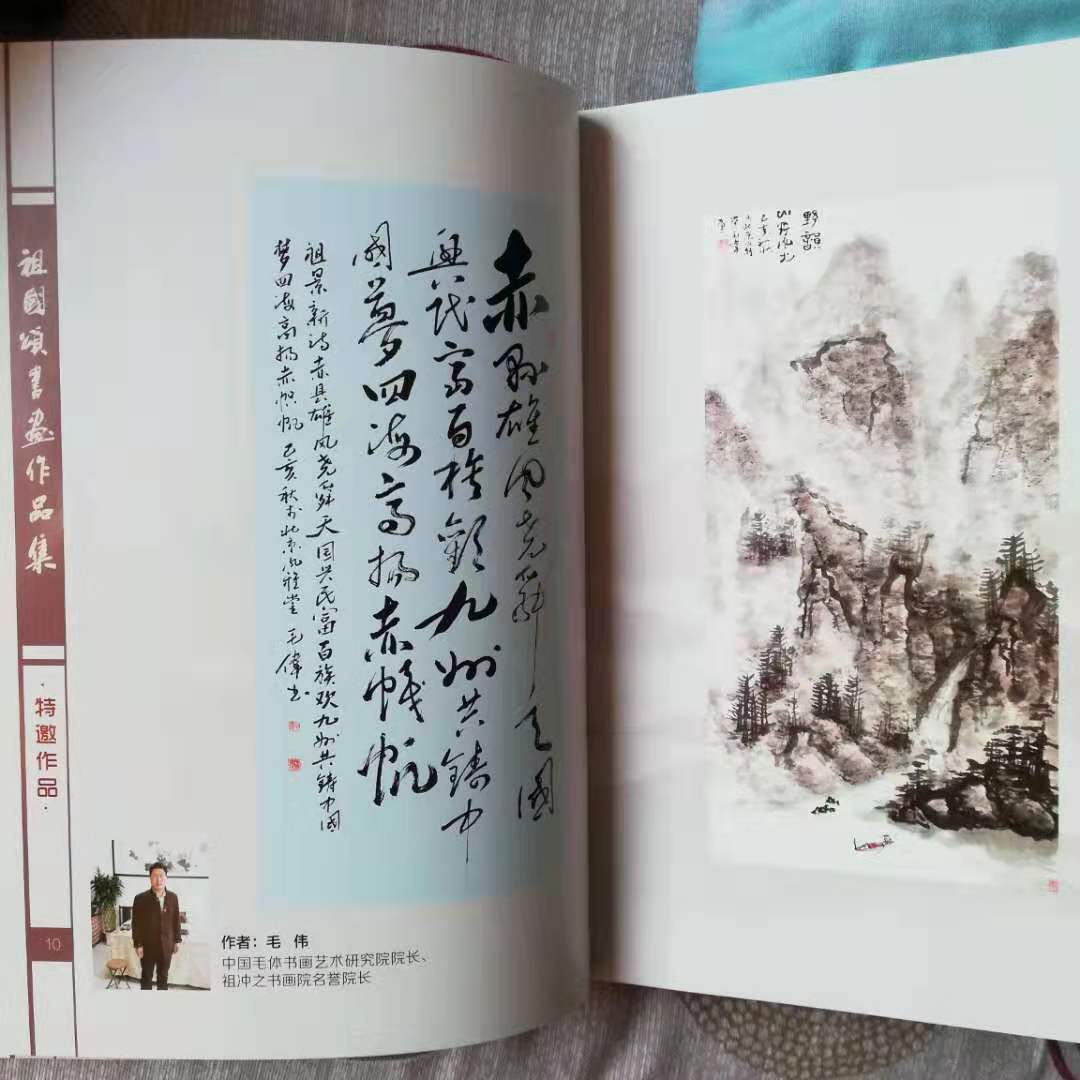 祖國頌書畫作品集
·特邀作品·
10
赤縣雄風尧舜天國
興民富百族歡九州共鑄中
國夢四海高揚赤幟帆
祖景新诗赤县雄风尧舜天国兴民富百族欢九州共鑄中國
梦四海高扬赤帜帆 己亥秋于北京风雅堂 毛偉书
作者：毛 伟
中国毛体书画艺术研究院院长、
祖冲之书画院名誉院长
野韻
己亥秋